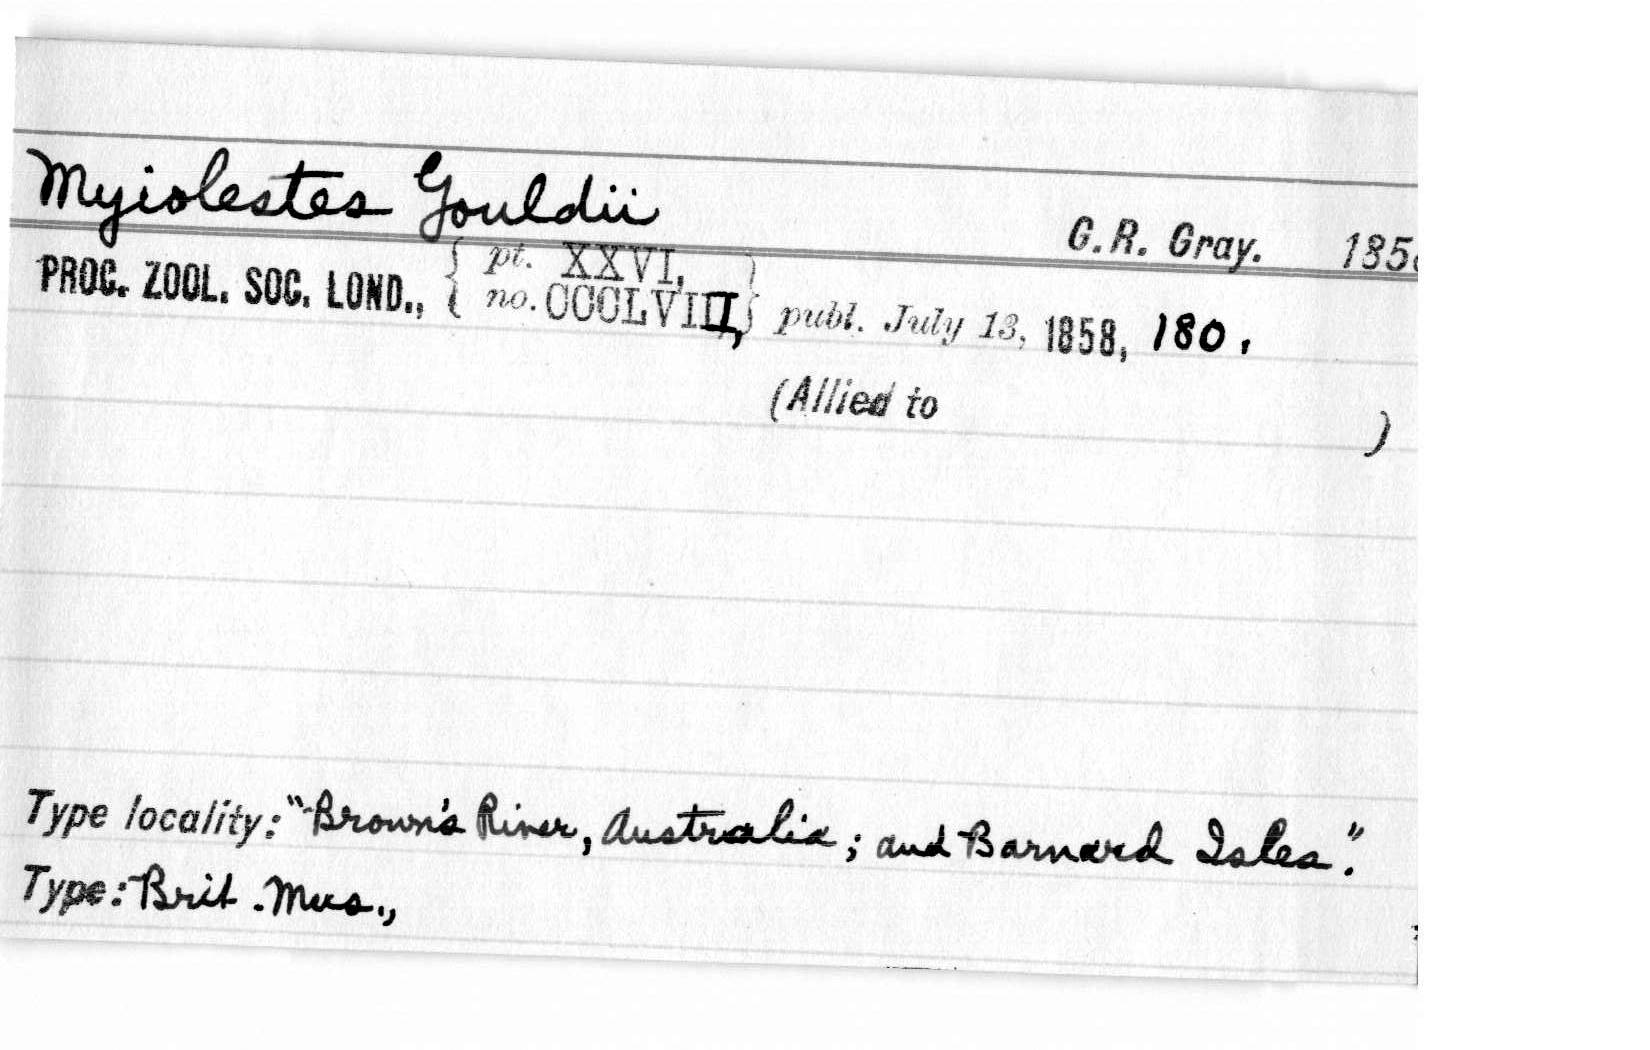 Myiolestes Gouldii
G.R. Gray. 185
PROC. ZOOL. SOC. LOND., { pt. XXVI, }
{ no. CCCLVIII, } publ. July 13, 1858, 180.
(Allied to )
Type locality: "Brown's River, Australia; and Barnard Isles".
Type: Brit. Mus.,